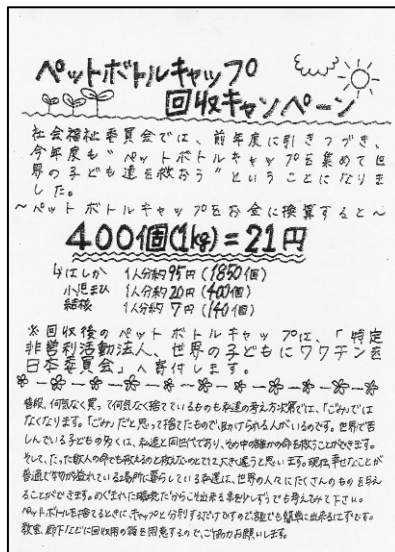 ペットボトルキャップ
回収キャンペーン
社会福祉委員会では、前年度に引きつづき、
今年度も“ペットボトルキャップを集めて世
界の子ども達を救おう”ということになりま
した。
～ペットボトルキャップをお金に換算すると～
400個(1kg)=21円
↳はしか 1人分約95円(1850個)
小児まひ 1人分約20円(400個)
結核 1人分約7円(140個)
※回収後のペットボトルキャップは、「特定
非営利活動法人、世界の子どもにワクチンを
日本委員会」へ寄付します。
普段、何気なく買って何気なく捨てているものも私達の考え方次第では、「ごみ」では
なくなります。「ごみ」だと思って捨てたもので助けられる人がいるのです。世界で苦
しんでいる子どもの多くは、私達と同世代であり、その中の誰かの命を救うことができます。
そして、たった数人の命でも救えるのと救えないのとでは大きく違うと思います。現在、幸せなことが
普通で物が溢れている場所に暮らしている私達は、世界の人々にたくさんのものを与え
ることができます。めぐまれた環境だからこそ出来る事を少しずつでも考えてみて下さい。
ペットボトルを捨てるときにキャップと分別するだけですので、誰でも簡単に出来るはずです。
教室、廊下などに回収用の箱を用意するので、ご協力お願いします。